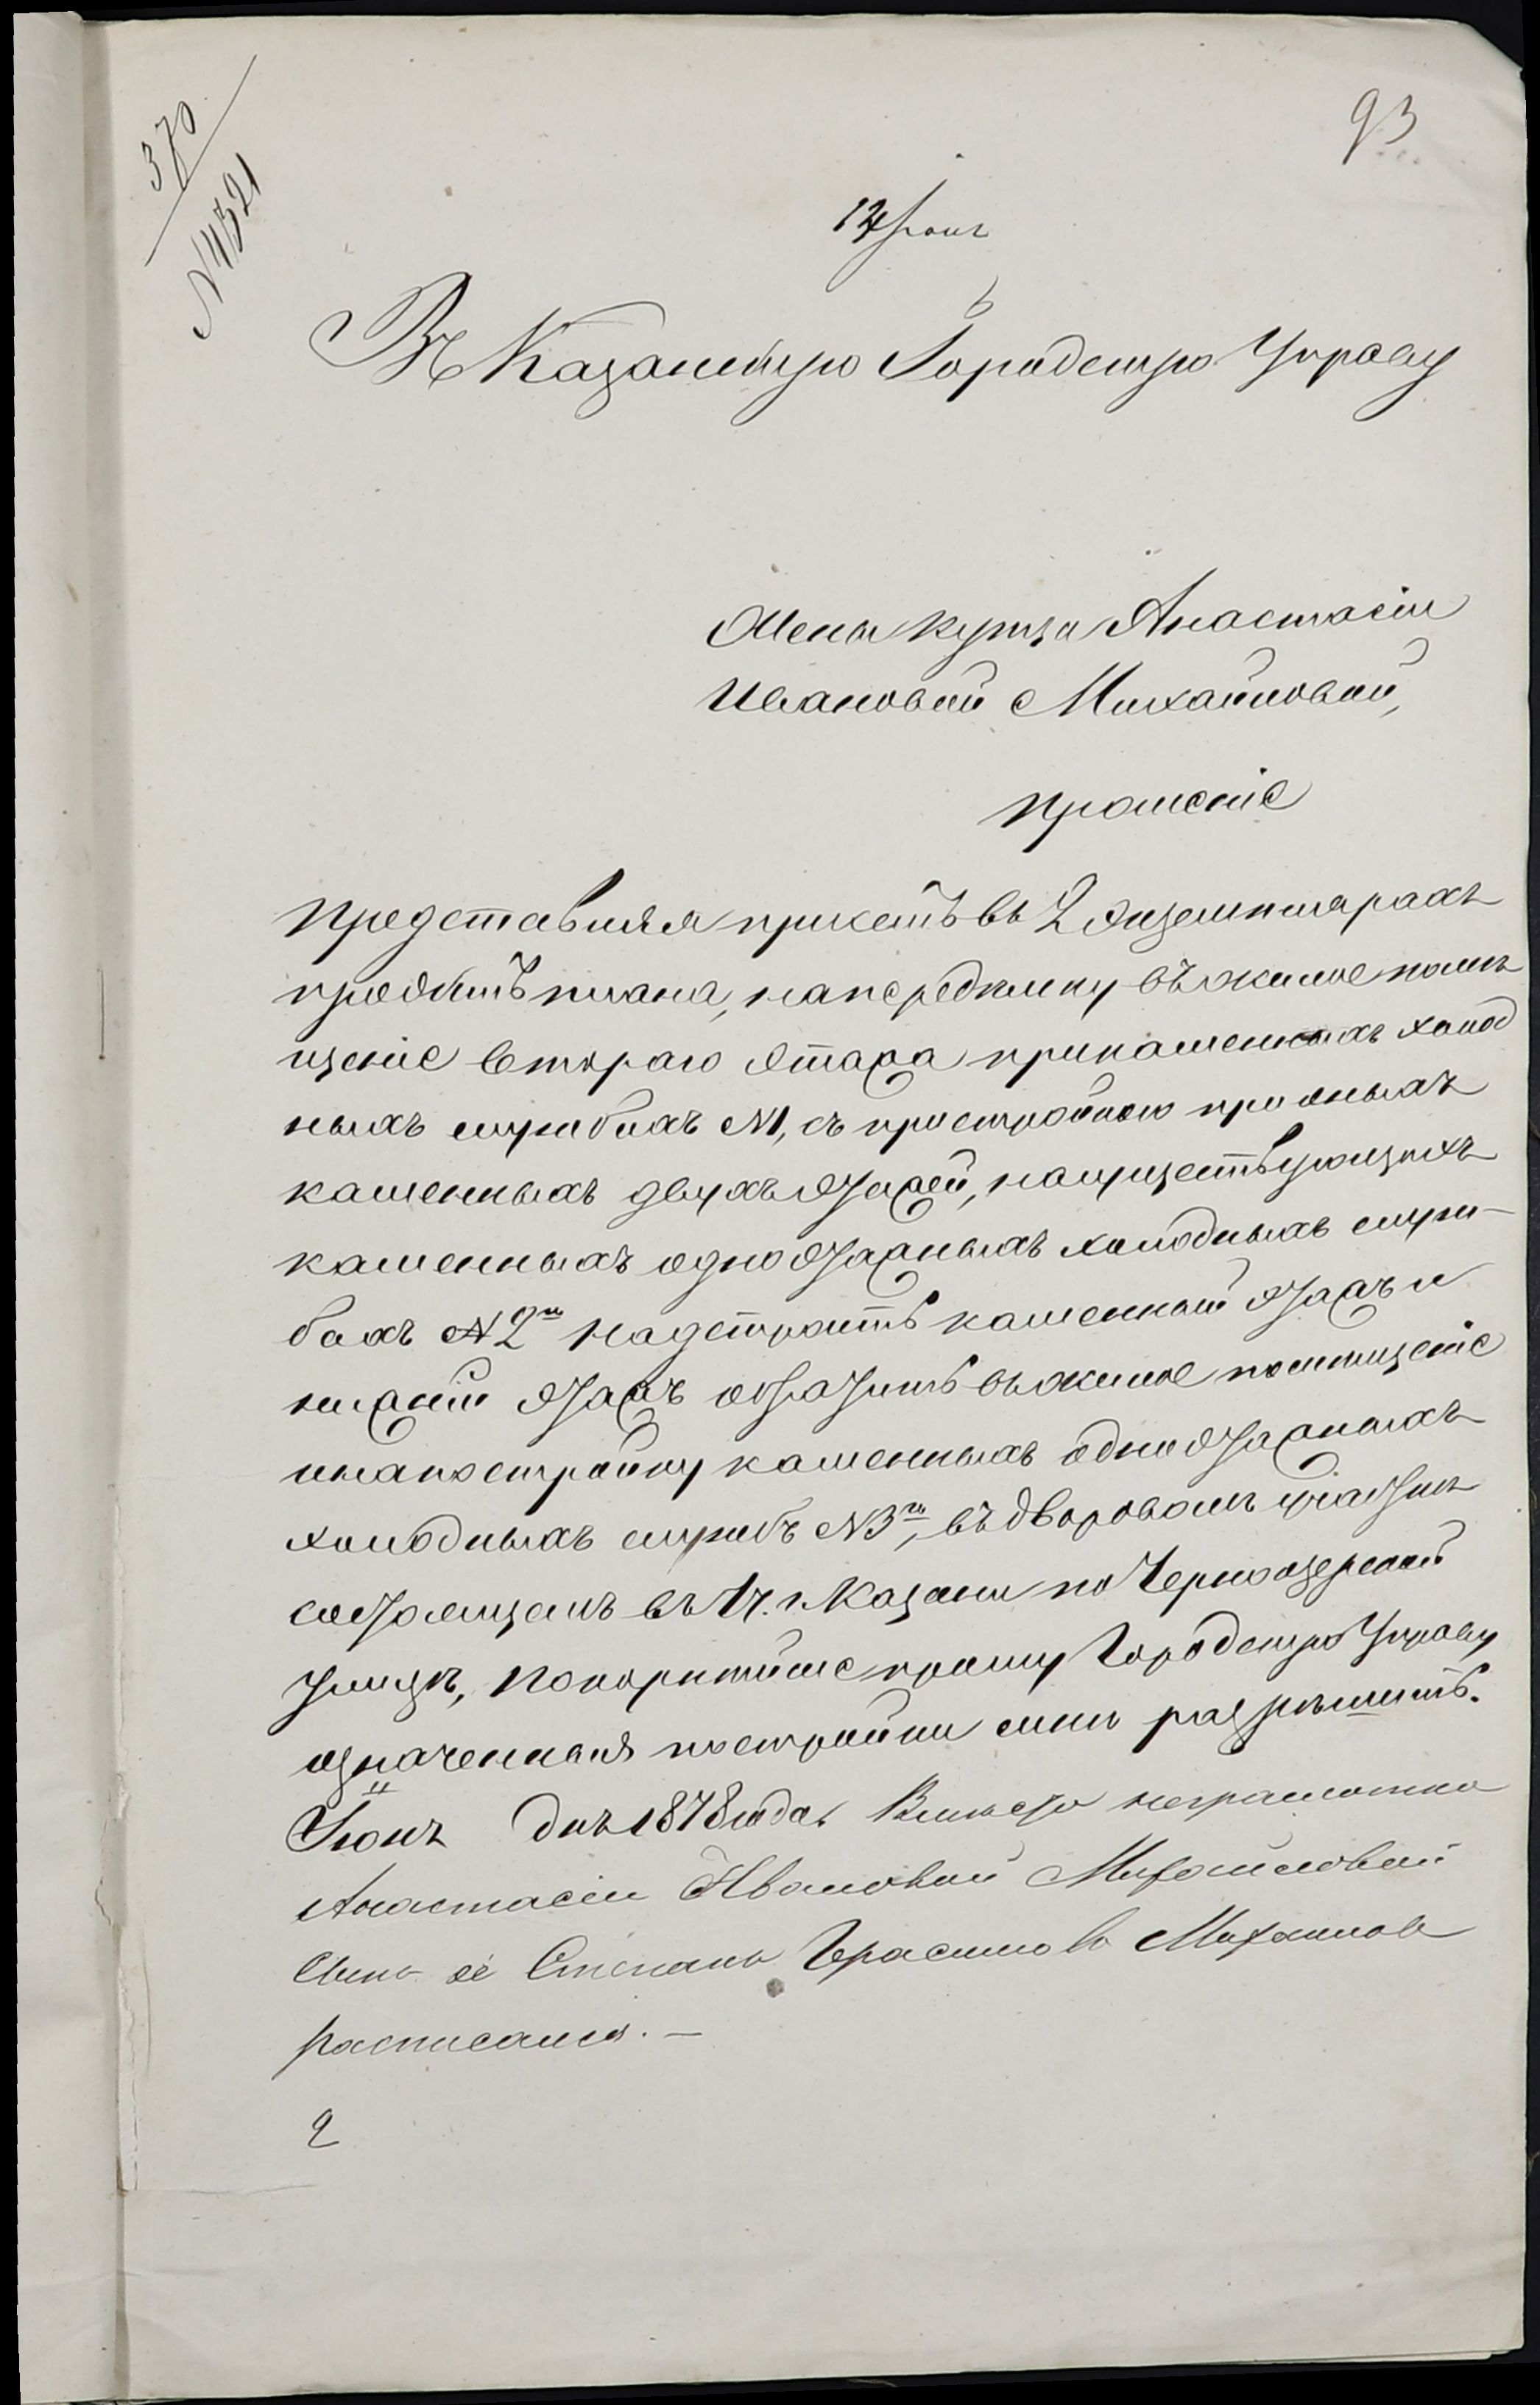 93
370
N 4321
12 Іюня
Въ Казанскую Городскую Управу
Жены купца Анастасіи
Ивановой Михайловой,
прошеніе
Представляя при семъ въ 2 экземплярахъ
проэктъ плана, на передѣлку въ жилое помѣ
щеніе втораго этажа при каменныхъ холод
ныхъ службахъ N1, съ пристройкою при оныхъ
каменныхъ двухъ этажей, на существующихъ
каменныхъ одноэтажныхъ холодныхъ служ-
бахъ N2м надстроить каменный этажъ и
нижній этажъ обратить въ жилое помѣщеніе
и на постройку каменныхъ одноэтажныхъ
холодныхъ службъ N3м, въ дворовомъ мѣстѣ
состоящемъ въ 1 ч. г. Казани по Черноозерской
улицѣ, покорнѣйше прошу Городскую Управу
означенныя постройки мнѣ разрѣшить.
Іюнь " дня 1878 года. Вмѣсто неграмотной
Анастасіи Ивановой Михайловой
сынъ её Степанъ Герасимовъ Михайловъ
росписался. —
2